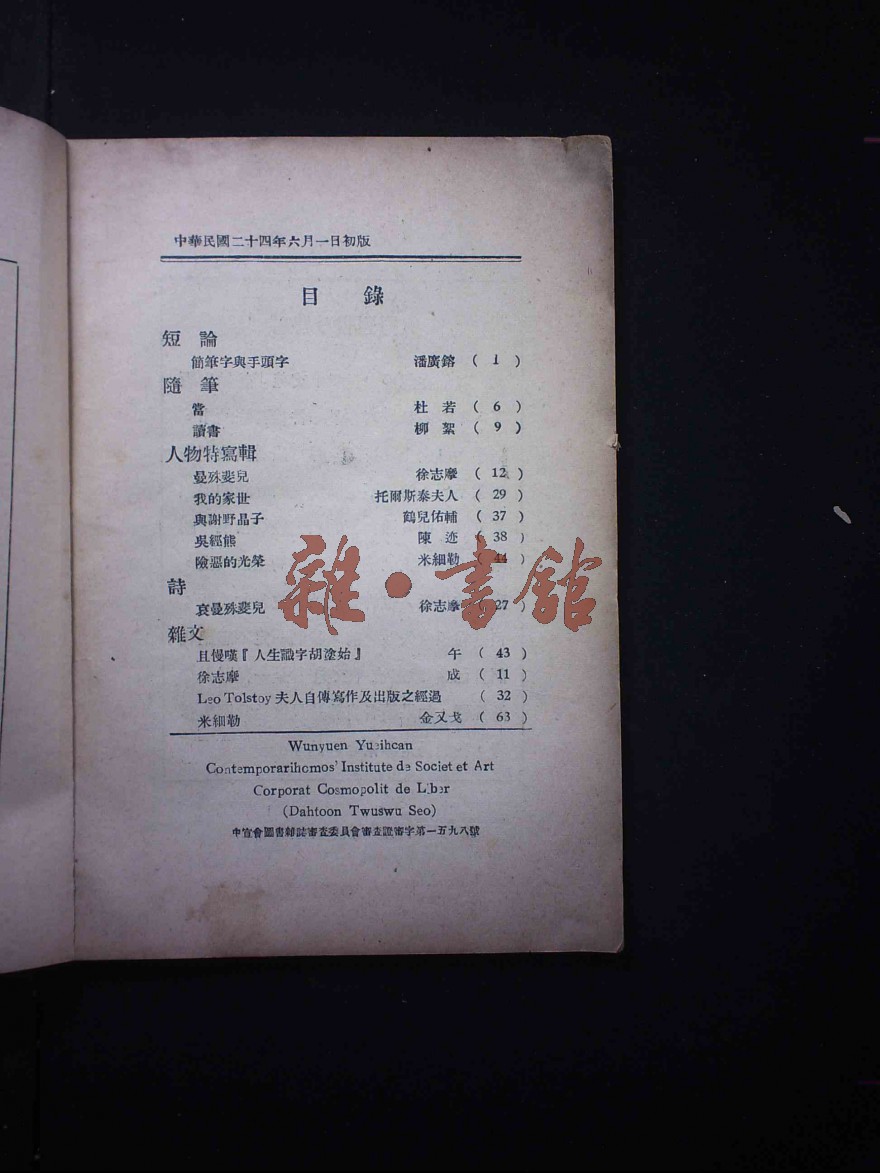 中華民國二十四年六月一日初版
目 錄
短 論
簡筆字與手頭字 潘廣鎔 ( 1 )
隨 筆
當 杜 若 ( 6 )
讀書 柳 絮 ( 9 )
人物特寫輯
曼殊斐兒 徐志摩 ( 12 )
我的家世 托爾斯泰夫人 ( 29 )
與謝野晶子 鶴見佑輔 ( 37 )
吳經熊 陳 迹 ( 38 )
險惡的光榮 米細勒 ( 44 )
詩
哀曼殊斐兒 徐志摩 ( 27 )
雜文
且慢嘆『人生識字胡塗始』 午 ( 43 )
徐志摩 成 ( 11 )
Leo Tolstoy 夫人自傳寫作及出版之經過 ( 32 )
米細勒 金又戈 ( 63 )
Wunyuen Yueihcan
Contemporarihomos' Institute de Societ et Art
Corporat Cosmopolit de Liber
(Dahtoon Twuswu Seo)
中宣會圖書雜誌審查委員會審查證審字第一五九八號
雜·書館